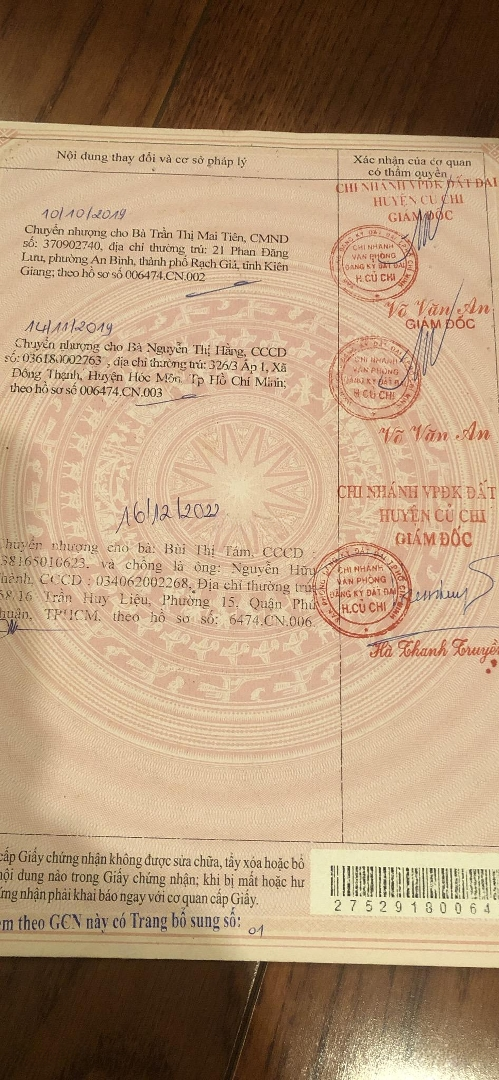 Nội dung thay đổi và cơ sở pháp lý
Xác nhận của cơ quan
có thẩm quyền
10/10/2019
Chuyển nhượng cho Bà Trần Thị Mai Tiên, CMND
số: 370902740, địa chỉ thường trú: 21 Phan Đăng
Lưu, phường An Bình, thành phố Rạch Giá, tỉnh Kiên
Giang; theo hồ sơ số 006474.CN.002
CHI NHÁNH VPĐK ĐẤT ĐAI
HUYỆN CỦ CHI
GIÁM ĐỐC
CHI NHÁNH
VĂN PHÒNG
ĐĂNG KÝ ĐẤT ĐAI
H.CỦ CHI
Võ Văn An
14/11/2019
Chuyển nhượng cho Bà Nguyễn Thị Hằng, CCCD
số: 036180002763 , địa chỉ thường trú: 326/3 Ấp 1, Xã
Đông Thạnh, Huyện Hóc Môn, Tp Hồ Chí Minh;
theo hồ sơ số 006474.CN.003
GIÁM ĐỐC
CHI NHÁNH
VĂN PHÒNG
ĐĂNG KÝ ĐẤT ĐAI
H.CỦ CHI
Võ Văn An
16/12/2022
Chuyển nhượng cho bà: Bùi Thị Tám, CCCD :
38165016623, và chồng là ông: Nguyễn Hữu
Thành, CCCD : 034062002268, Địa chỉ thường trú:
58.16 Trần Huy Liệu, Phường 15, Quận Phú
Nhuận, TP.HCM, theo hồ sơ số: 6474.CN.006.
CHI NHÁNH VPĐK ĐẤT
HUYỆN CỦ CHI
GIÁM ĐỐC
CHI NHÁNH
VĂN PHÒNG
ĐĂNG KÝ ĐẤT ĐAI
H.CỦ CHI
Hà Thanh Truyền
cấp Giấy chứng nhận không được sửa chữa, tẩy xóa hoặc bổ
nội dung nào trong Giấy chứng nhận; khi bị mất hoặc hư
ứng nhận phải khai báo ngay với cơ quan cấp Giấy.
2752918 0064
èm theo GCN này có Trang bổ sung số: 01